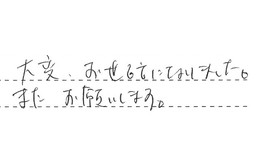 大変、お世話になりました。
また お願いします。